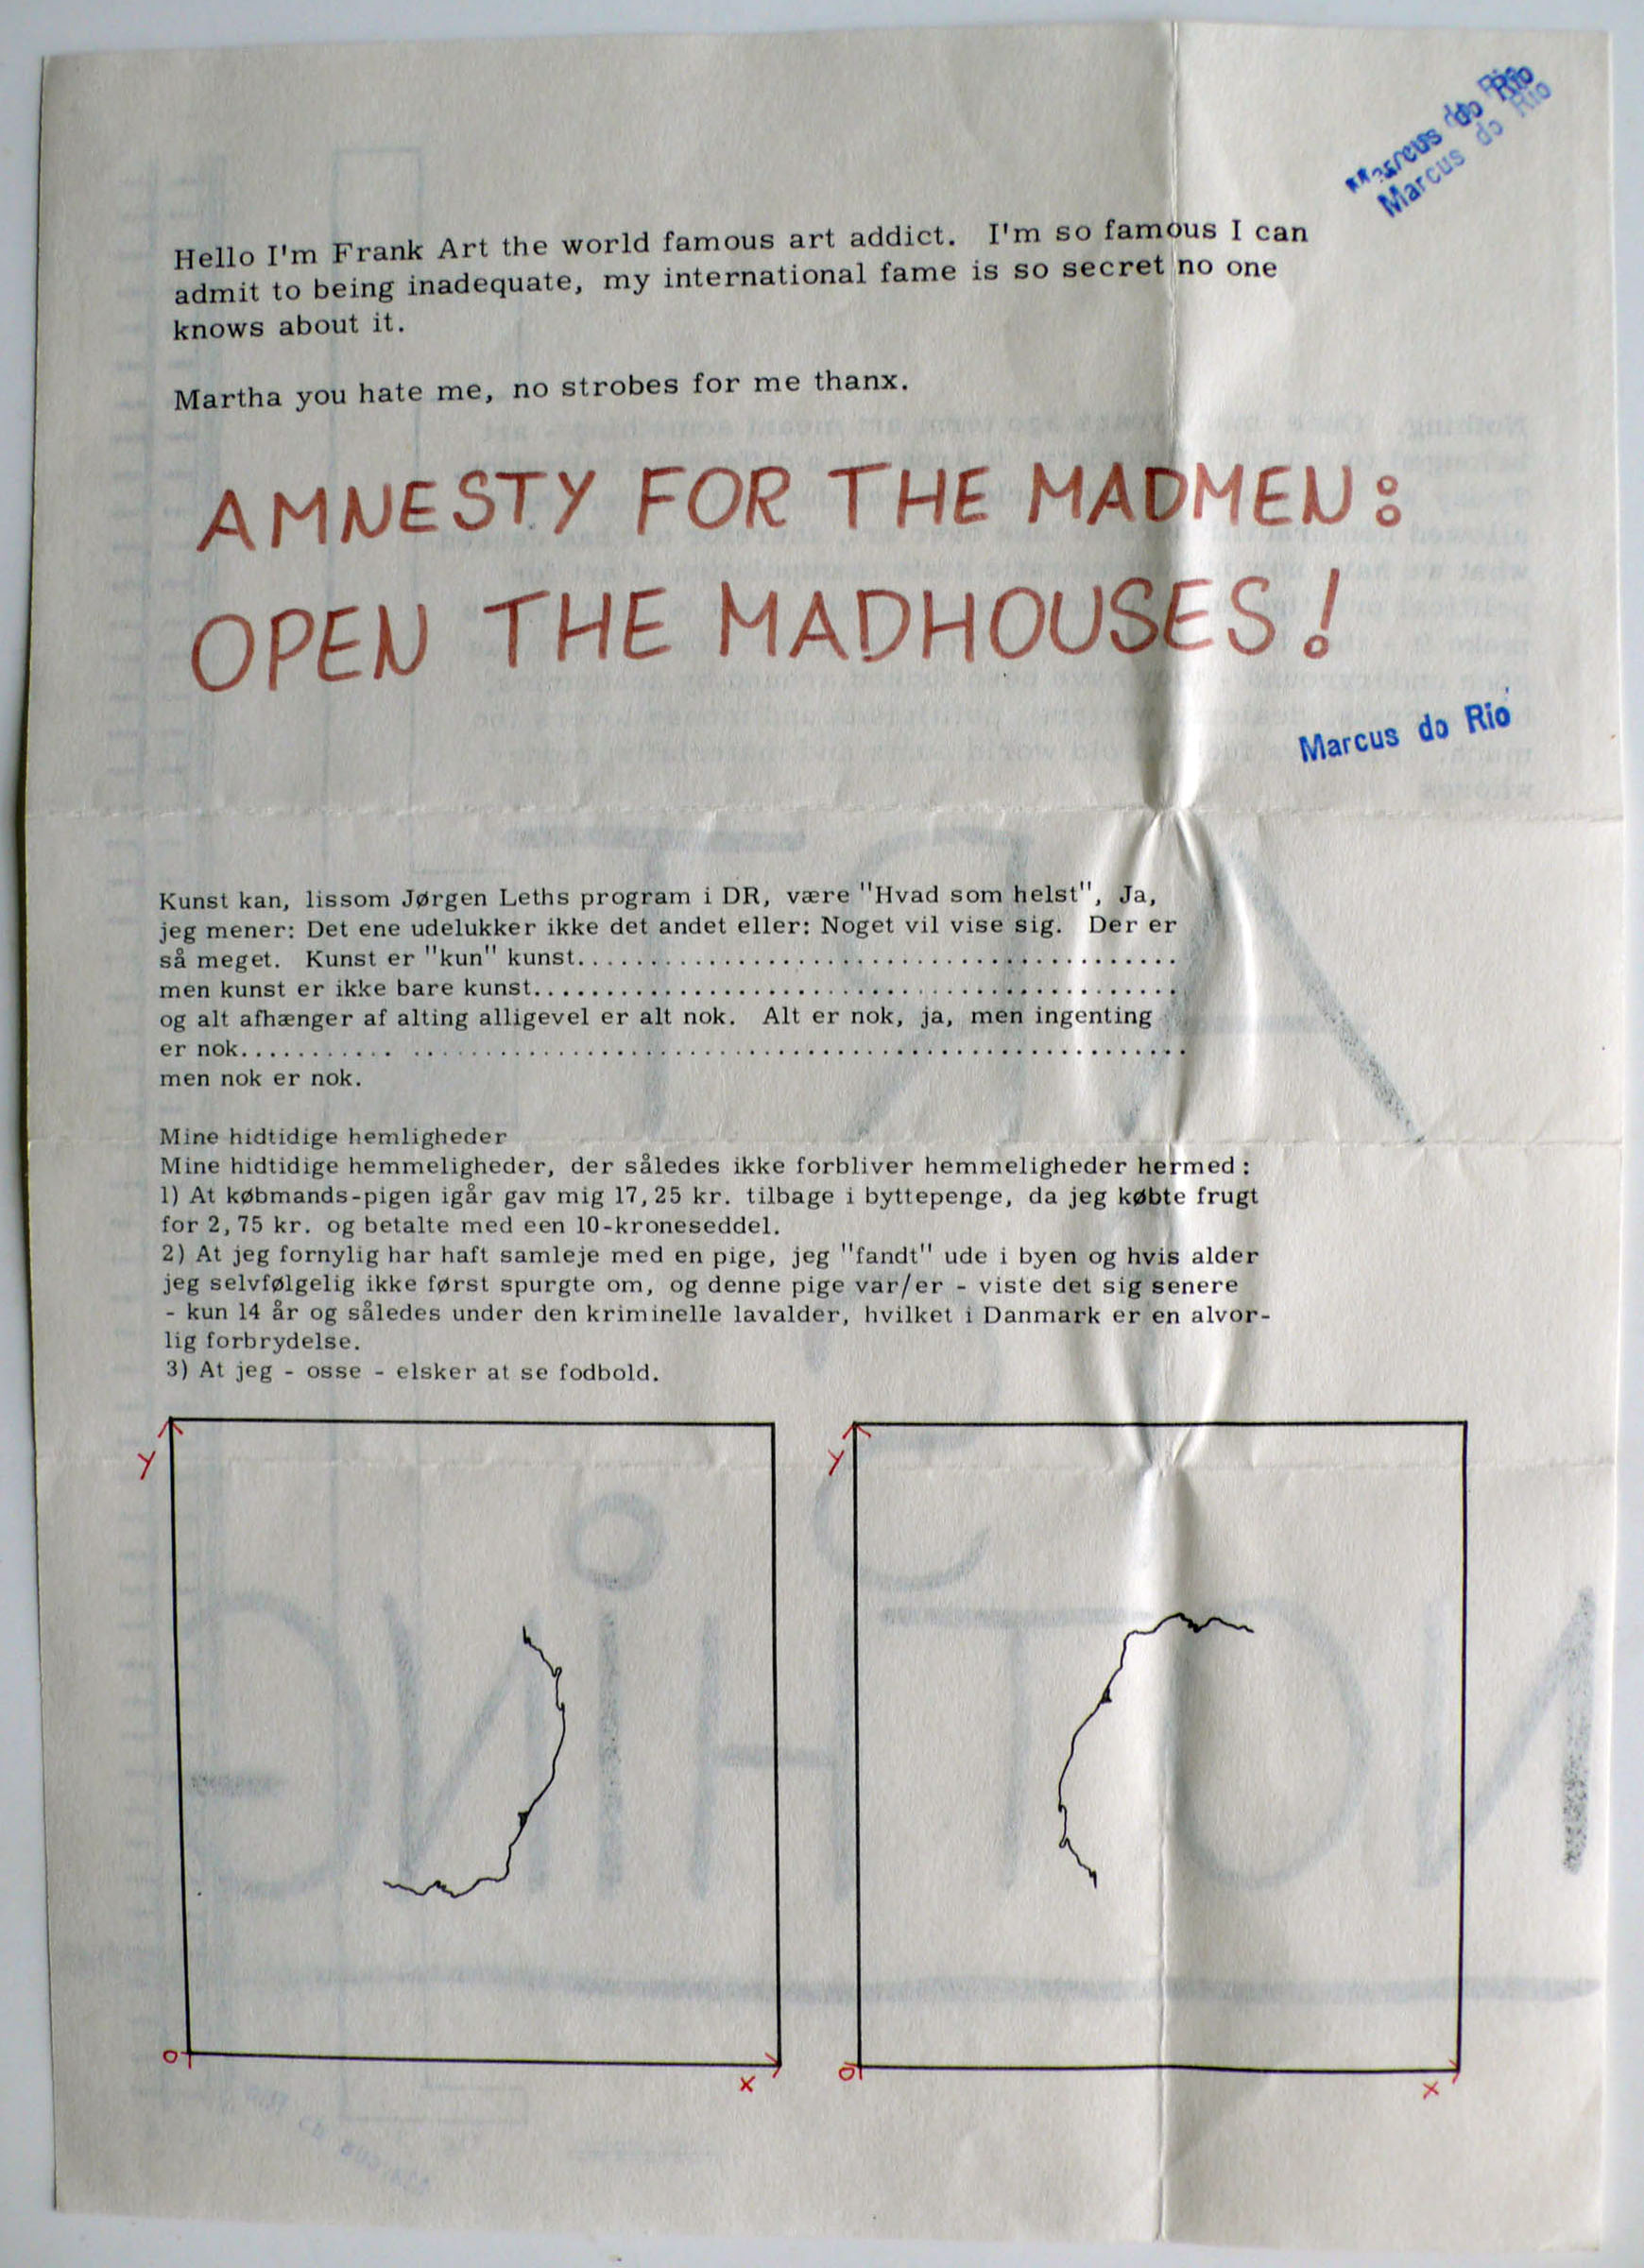 Marcus do Rio
Marcus do Rio
Hello I'm Frank Art the world famous art addict. I'm so famous I can
admit to being inadequate, my international fame is so secret no one
knows about it.
Martha you hate me, no strobes for me thanx.
AMNESTY FOR THE MADMEN:
OPEN THE MADHOUSES!
Marcus do Rio
Kunst kan, lissom Jørgen Leths program i DR, være "Hvad som helst", Ja,
jeg mener: Det ene udelukker ikke det andet eller: Noget vil vise sig. Der er
så meget. Kunst er "kun" kunst.........................................
men kunst er ikke bare kunst............................................
og alt afhænger af alting alligevel er alt nok. Alt er nok, ja, men ingenting
er nok........... ......................................................
men nok er nok.
Mine hidtidige hemligheder
Mine hidtidige hemmeligheder, der således ikke forbliver hemmeligheder hermed:
1) At købmands-pigen igår gav mig 17,25 kr. tilbage i byttepenge, da jeg købte frugt
for 2,75 kr. og betalte med een 10-kroneseddel.
2) At jeg fornylig har haft samleje med en pige, jeg "fandt" ude i byen og hvis alder
jeg selvfølgelig ikke først spurgte om, og denne pige var/er - viste det sig senere
- kun 14 år og således under den kriminelle lavalder, hvilket i Danmark er en alvor-
lig forbrydelse.
3) At jeg - osse - elsker at se fodbold.
y
y
o
x
o
x